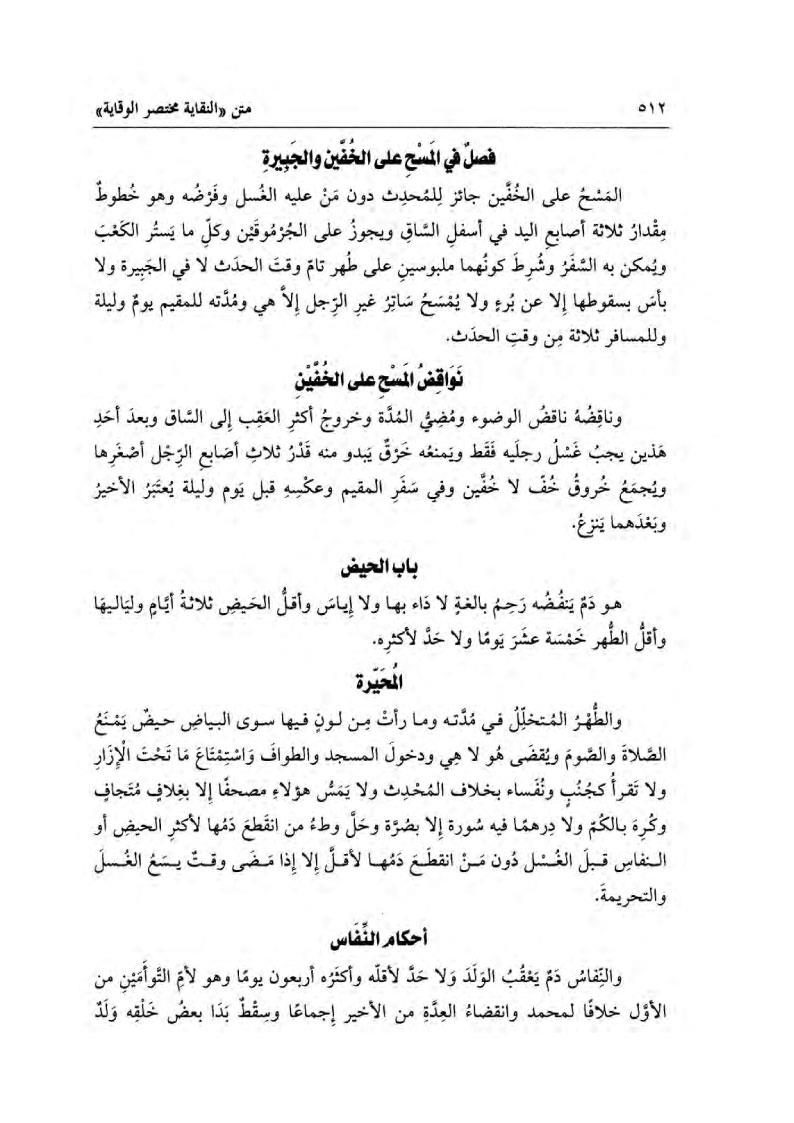 ٥١٢
متن «النقاية مختصر الوقاية»
فصلٌ في المَسْحِ على الخُفَّين والجَبِيرةِ
المَسْحُ على الخُفَّين جائز لِلمُحدِث دون مَنْ عليه الغُسل وفَرْضُه وهو خُطوطٌ
مِقْدارُ ثلاثة أصابعِ اليد في أسفلِ السَّاقِ ويجوزُ على الجُرْمُوقَيْن وكلِّ ما يَستُر الكَعْبَ
ويُمكن به السَّفَرُ وشُرِطَ كونُهما ملبوسينِ على طُهر تامّ وقتَ الحدَث لا في الجَبِيرة ولا
بأسَ بسقوطها إلا عن بُرءٍ ولا يُمْسَحُ سَاتِرُ غيرِ الرِّجل إلاَّ هي ومُدَّته للمقيم يومٌ وليلة
وللمسافر ثلاثة مِن وقتِ الحدَث.
نَوَاقِضُ المَسْحِ على الخُفَّيْنِ
وناقِضُهُ ناقضُ الوضوء ومُضِيُّ المُدَّة وخروجُ أكثرِ العَقِب إلى السَّاق وبعدَ أحَدِ
هَذين يجبُ غَسْلُ رجلَيه فَقَط ويَمنعُه خَرْقٌ يَبدو منه قَدْرُ ثلاثِ أصَابع الرِّجْل أصْغَرِها
ويُجمَعُ خُروقُ خُفّ لا خُفَّين وفي سَفَرِ المقيم وعكْسِهِ قبل يَوم وليلة يُعتَبَرُ الأخيرُ
وبَعْدَهما يَنزِعُ.
باب الحيض
هو دَمٌ يَنفُضُه رَحِمُ بالغةٍ لا دَاء بها ولا إياسَ وأقلُّ الحَيضِ ثلاثةُ أيَّامٍ وليَاليهَا
وأقلُّ الطُّهر خَمْسَة عشَرَ يَومًا ولا حَدَّ لأكثرِه.
المُحَيِّرة
والطُّهْرُ المُتخلِّلُ في مُدَّته وما رأتْ مِن لونٍ فيها سوى البياضِ حيضٌ يَمْنَعُ
الصَّلاةَ والصَّومَ ويُقضَى هُو لا هِي ودخولَ المسجد والطوافَ وَاسْتِمْتَاعَ مَا تَحْتَ الْإزَارِ
ولا تَقرأُ كجُنُبٍ ونُفَساء بخلاف المُحْدِث ولا يَمَسُّ هؤلاءِ مصحفًا إلا بغِلافٍ مُتَجافٍ
وكُرِهَ بالكُمّ ولا دِرهمًا فيه سُورة إلا بصُرَّة وحَلَّ وطءُ من انقَطعَ دَمُها لأكثرِ الحيضِ أو
النفاسِ قبلَ الغُسْل دُون مَنْ انقطَعَ دَمُها لأقلَّ إلا إذا مَضَى وقتٌ يسَعُ الغُسلَ
والتحريمةَ.
أحكام النِّفَاس
والنِّفاسُ دَمٌ يَعْقُبُ الوَلَدَ وَلا حَدَّ لأقلّه وأكثَرُه أربعون يومًا وهو لأمّ التَّوأَمَيْنِ من
الأوَّل خلافًا لمحمد وانقضاءُ العِدَّةِ من الأخيرِ إجماعًا وسِقْطٌ بَدَا بعضُ خَلْقِه وَلَدٌ